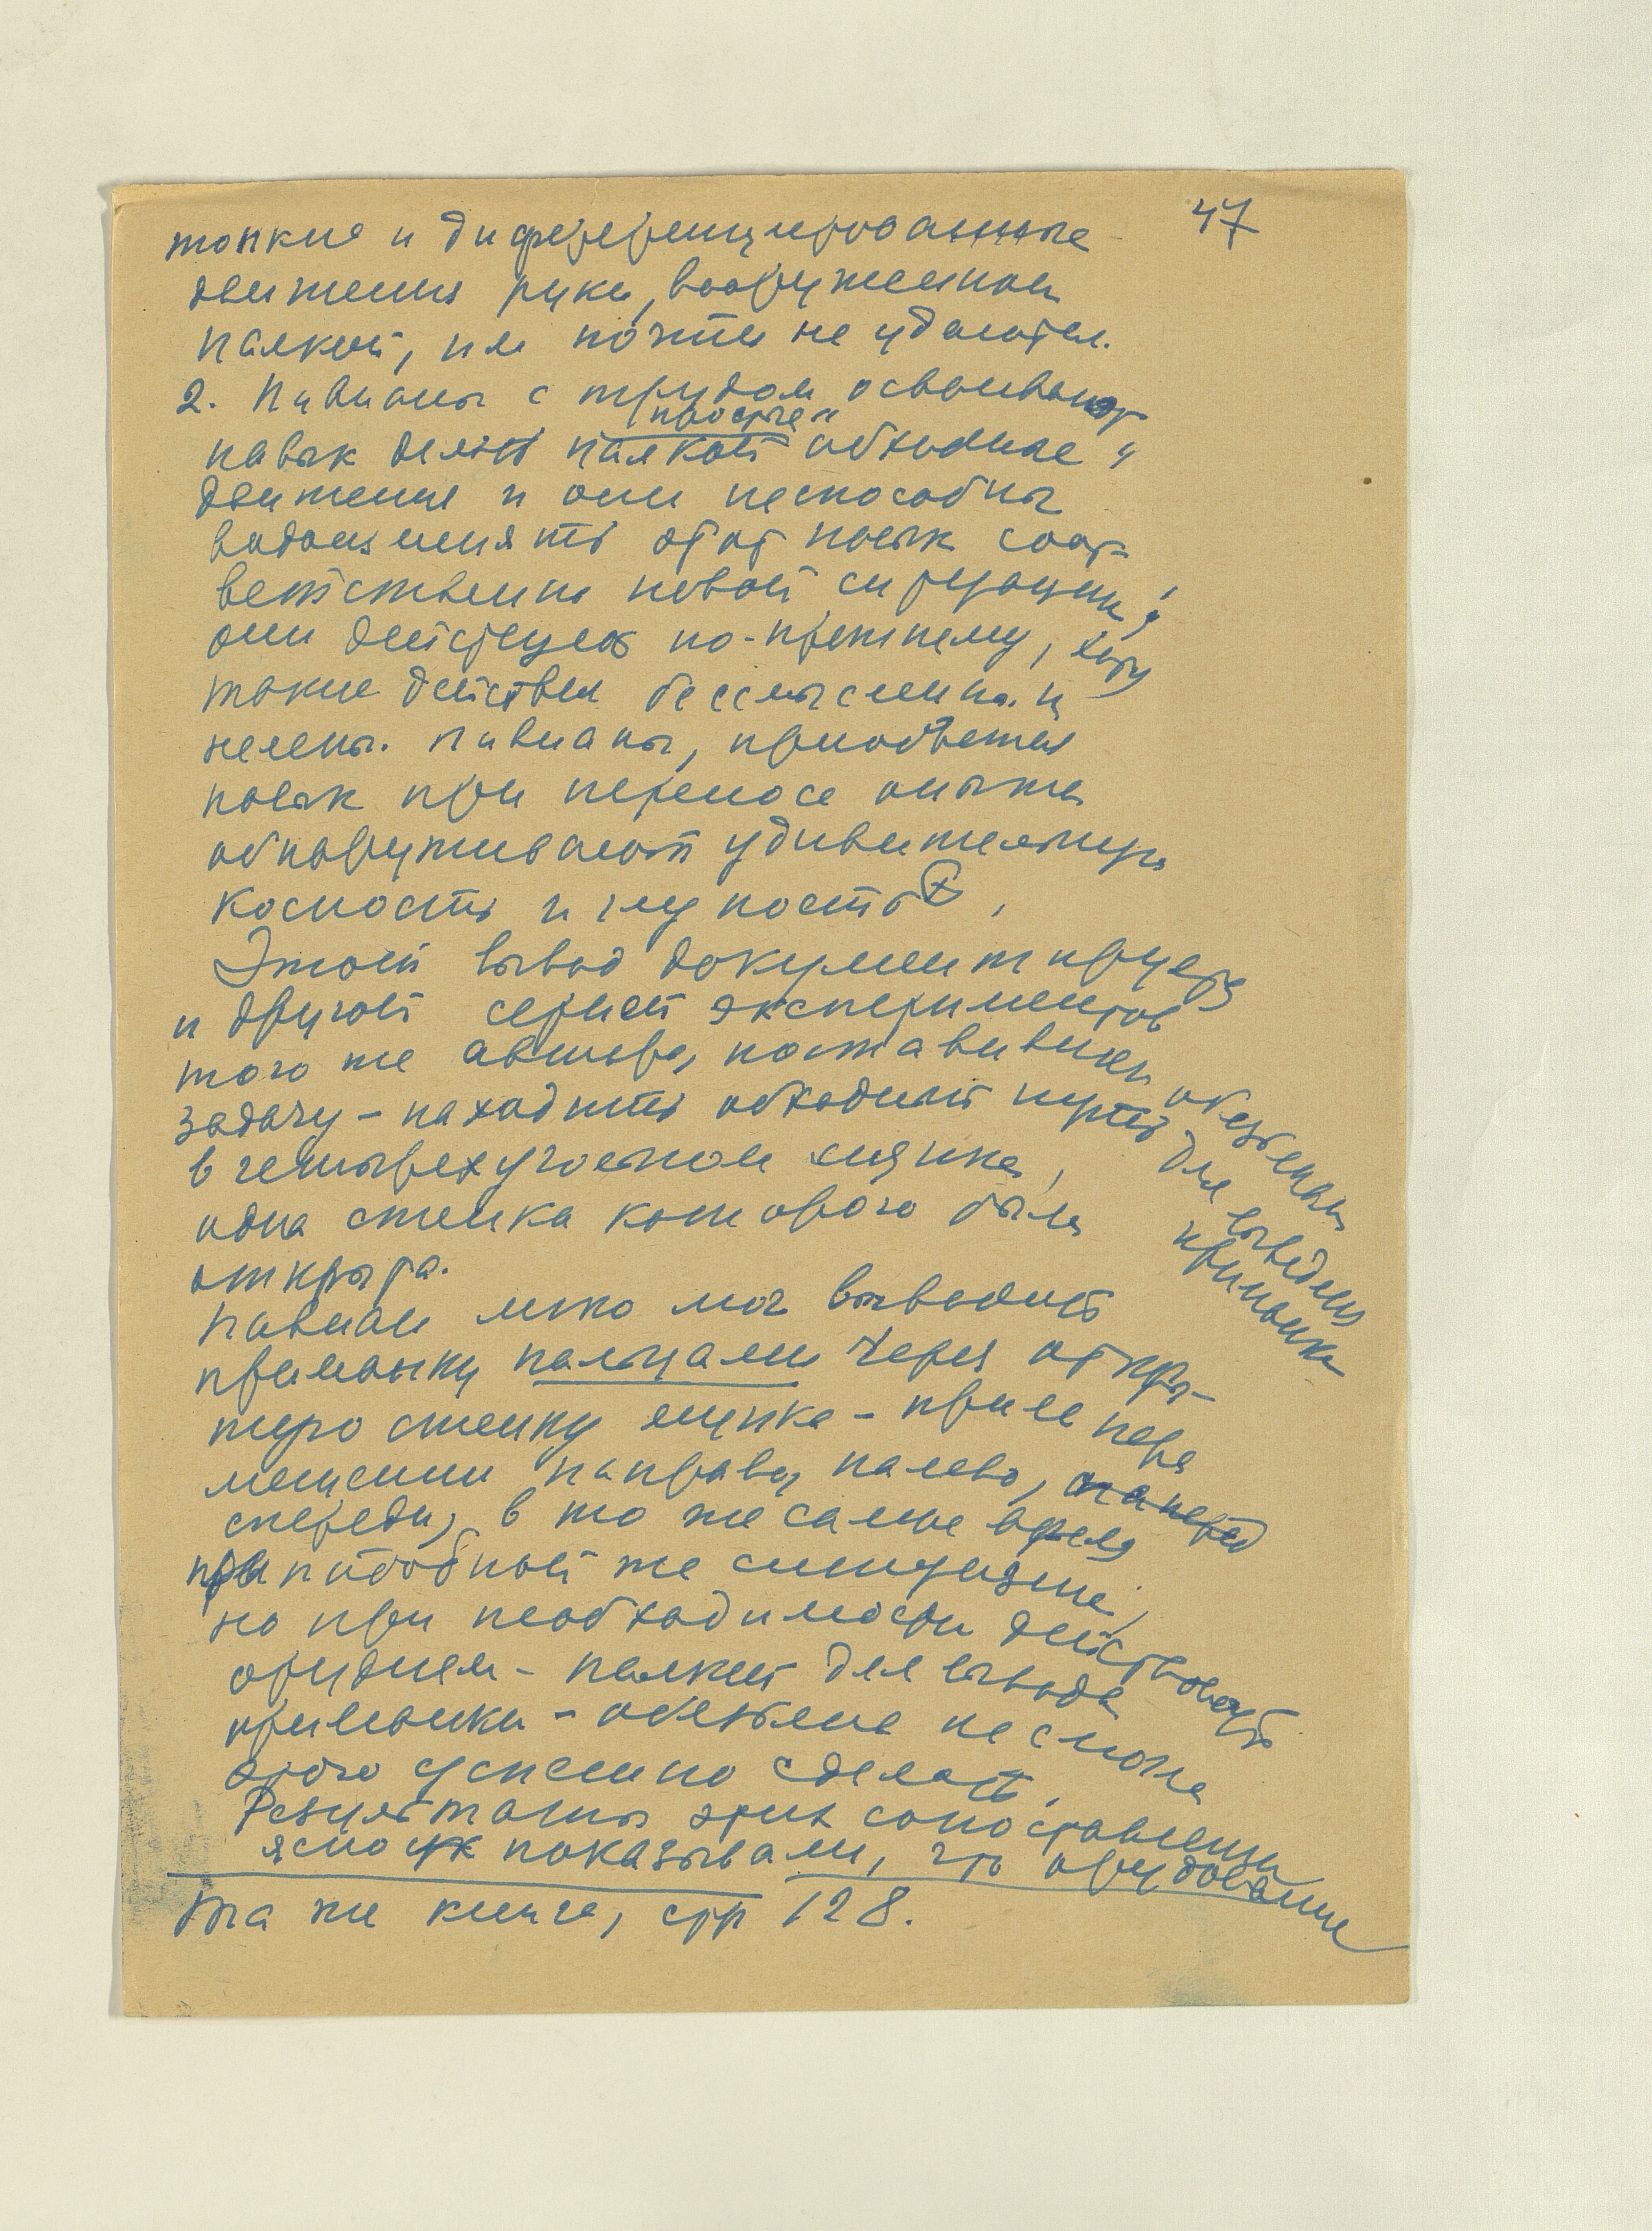 47
тонкие и диференцированные
движения руки, вооруженной
палкой, им почти не удаются.
2. Павианы с трудом осваивают
"простые"
навык делать палкой обходные
движения и они неспособны
видоизменять этот навык соот-
ветственно новой ситуации;
они действуют по-прежнему, хотя
такие действия бессмысленны и
нелепы. Павианы,
навык при переносе опыта
обнаруживают удивительную
косность и глупость ⊗,
Этот вывод документируется
и другой серией экспериментов
того же автора, поставивших обезьянам
задачу – находить обходный путь для выведения приманки
в четырехугольном ящике,
одна стенка которого была
открыта.
Павиан легко мог выводить
приманку пальцами через откры-
тую стенку ящика – при ее пере
мещении направо, налево, наперед
спереди, в то же самое время
при подобной же ситуации,
но при необходимости действовать
орудием – палкой для вывода
приманки – обезьяна не смогла
этого успешно сделать.
Результаты этих сопоставлений
ясно показывали, что орудование
Та же книга, стр 128.